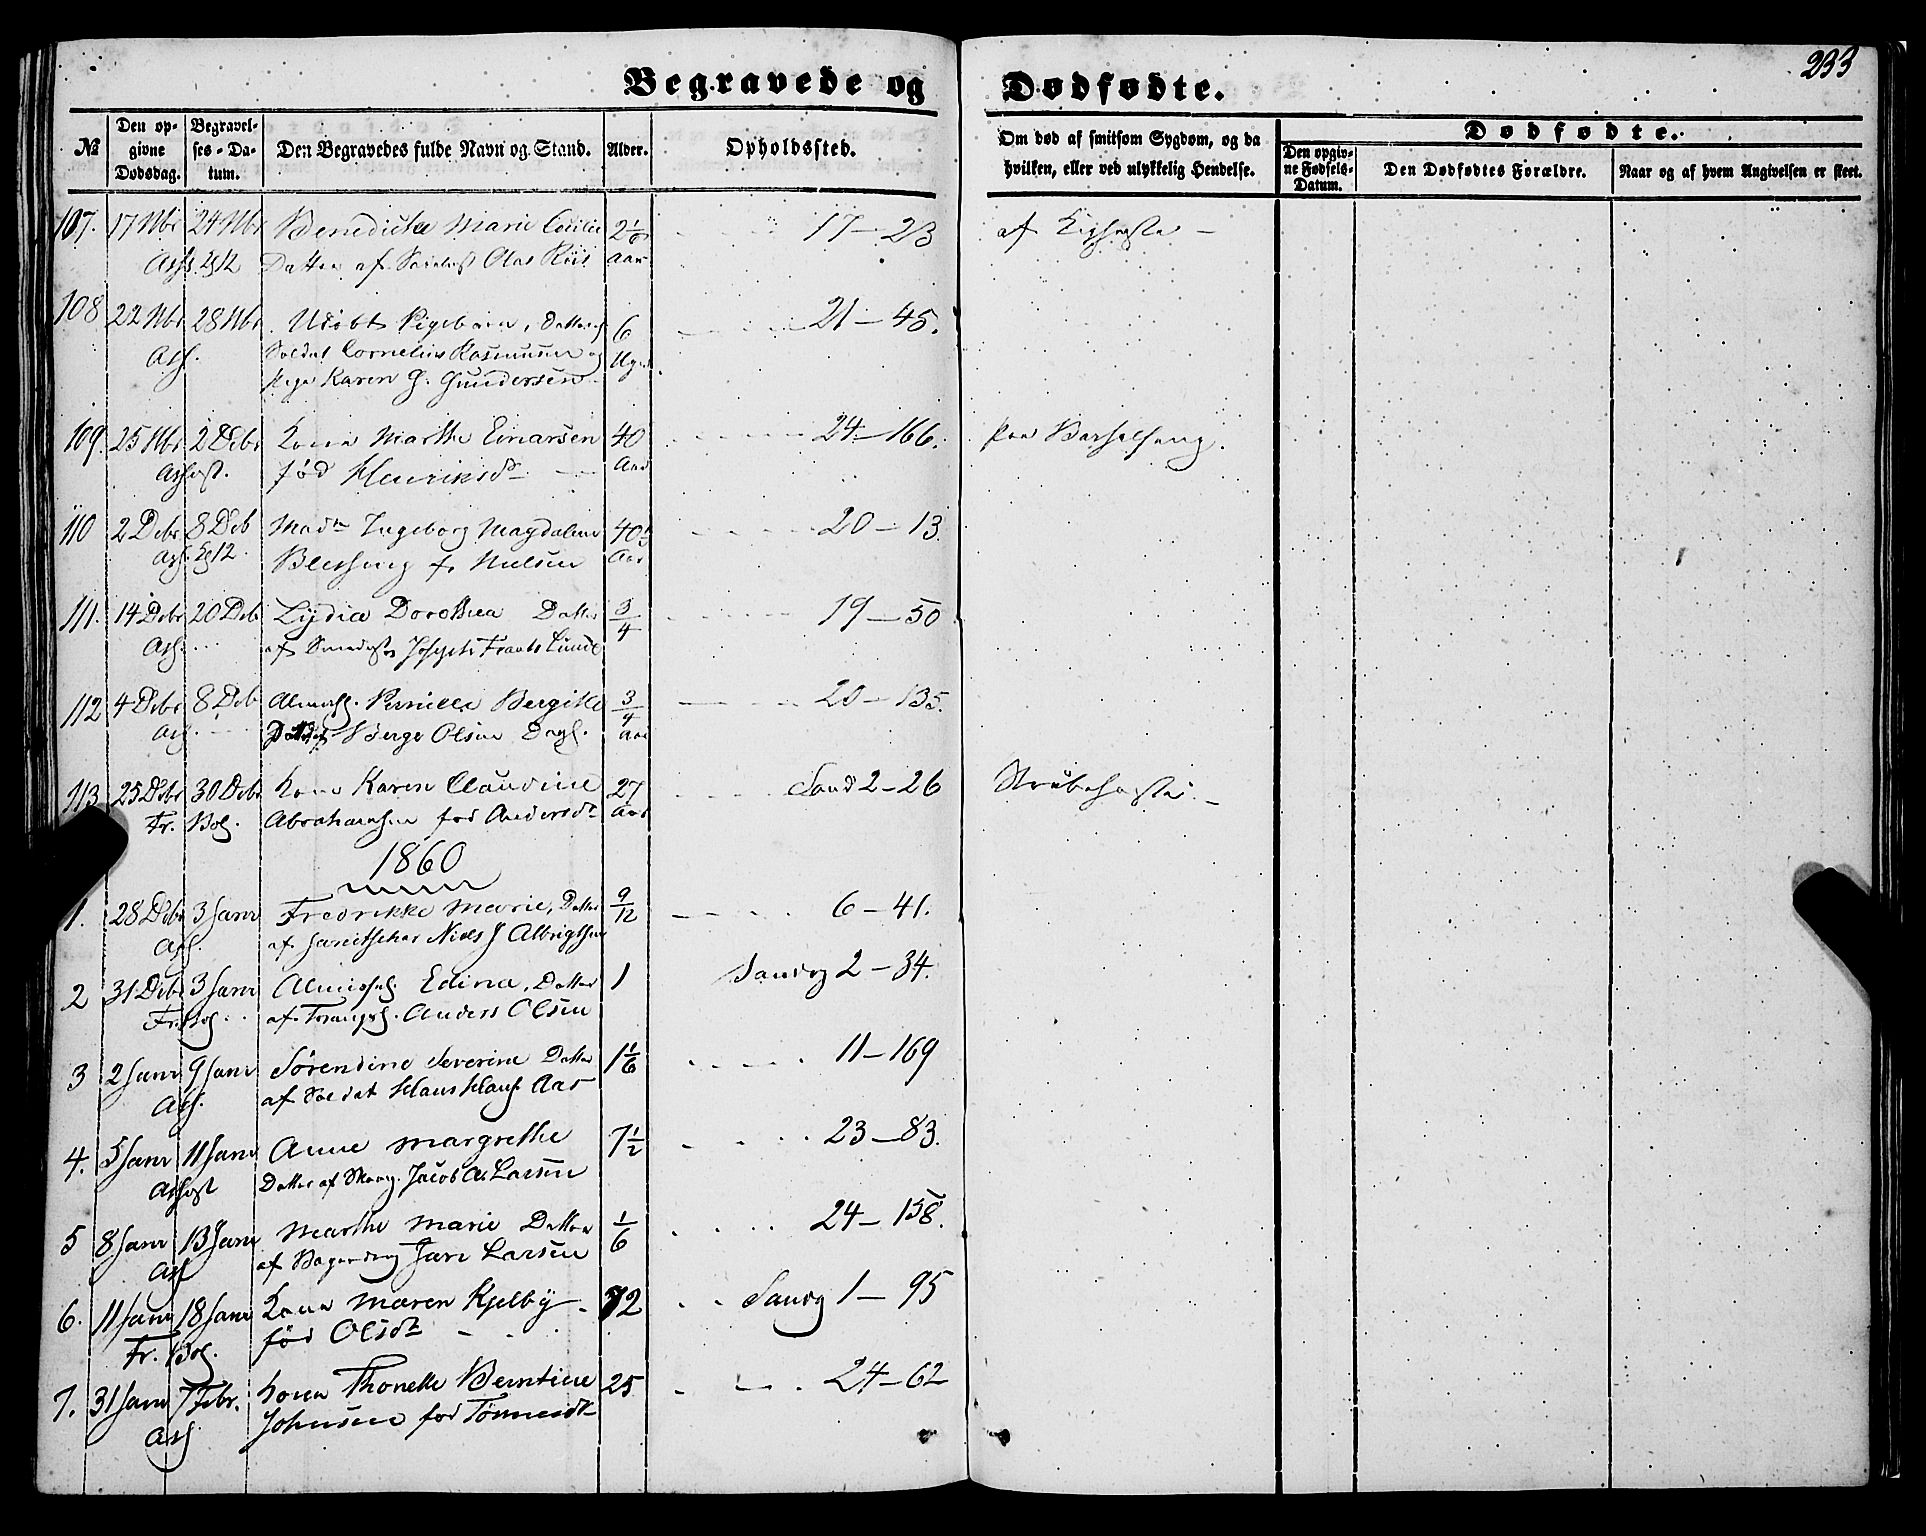 233
Begravede og Dødfødte.
№
Den op-
givne
Dødsdag.
Begravel-
ses-Da-
tum.
Den Begravedes fulde Navn og Stand.
Alder.
Opholdssted.
Om død af smitsom Sygdom, og da
hvilken, eller ved ulykkelig Hendelse.
Dødfødte.
Den opgiv-
ne Fødsels-
Datum.
Den Dødfødtes Forældre.
Naar og af hvem Angivelsen er skeet.
107. 17 Nbr 24 Nbr Benedicte Marie Cecilie 17-23 af Kighoste -
Datter af Olas Riis Aar
108 22 Nbr 28 Nbr. Udøbt Pigebarn, Datter af 6 21-45.
Ass. Soldat Cornelius Rasmussen og Uger
Karen G. Gundersen
109. 25 Nbr 2 Debr Kone Marthe Einarsen 40 24-166. paa Barselseng.
født Henriksdr Aar
110 2 Debr 8 Deb Madm Ingeborg Magdalene 20-13.
f. Nielsen Aar
111. 14 Debr 20 Deb Lydia Dorothea Datter 3/4 19-50
Ass. af Joseph Frants Lunde
112 4 Debr 8 Deb Pernille Bergitte 3/4 20-135.
Ass. Børge Olsen Aar
113 25 Debr 30 Debr Kone Karen Claudine 27 Sand 2-26 Strubehoste.-
Fr. Bol. Abrahamsen fød Andersdr Aar
1860
1. 28 Debr 3 Janr Fredrikke Marie, Datter 9/12 6-41.
Ass. af Janitschar Niels J Albrigtsen
2 31 Debr 3 Janr Edina, Datter 1 Sandv 2-34.
Fr. Bol. af Anders Olsen
3 2 Janr 9 Janr Sørendine Severine Datter 1 1/6 11-169
Ass. af Soldat Aas
4. 5 Janr 11 Janr Anne Margrethe 7 1/2 23-83.
Datter af Jacob A. Larsen
5 8 Janr 13 Janr Marthe Marie Datter 1/6 24-158.
Ass af Larsen
6. 11 Janr 18 Janr Kone Maren Kjelby 72 Sandv 1-95
Fr. Bol. fød Olsdr
7. 31 Janr 7 Febr. Kone Thonette Berntine 25 24-62
Ass Johnsen fød Tønnesdr